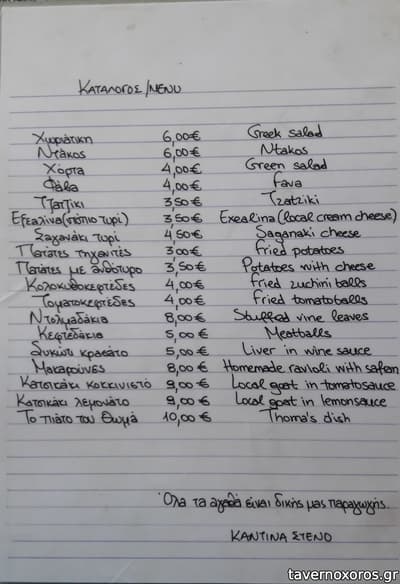 ΚΑΤΑΛΟΓΟΣ/MENU
Χωριάτικη 6,00€ Greek salad
Ντάκος 6,00€ Ntakos
Χόρτα 4,00€ Green salad
Φάβα 4,00€ Fava
Τζατζίκι 3,50€ Tzatziki
Εξεαλινα(ντόπιο τυρί) 3,50€ Exealina (local cream cheese)
Σαγανάκι τυρί 4,50€ Saganaki cheese
Πατάτες τηγανιτές 3,00€ Fried potatoes
Πατάτες με ανθότυρο 3,50€ Potatoes with cheese
Κολοκυθοκεφτέδες 4,00€ Fried zuchini balls
Τοματοκεφτέδες 4,00€ Fried tomatoballs
Ντολμαδάκια 8,00€ Stuffed vine leaves
Κεφτεδάκια 5,00€ Meatballs
Συκώτι κρασάτο 5,00€ Liver in wine sauce
Μακαρούνες 8,00€ Homemade ravioli with safran
Κατσικάκι κοκκινιστό 9,00€ Local goat in tomatosauce
Κατσικάκι λεμονάτο 9,00€ Local goat in lemonsauce
Το πιάτο του Θωμά 10,00€ Thoma's dish
Όλα τα αγαθά είναι δικής μας παραγωγής.
ΚΑΝΤΙΝΑ ΣΤΕΝΟ
tavernoxoros.gr